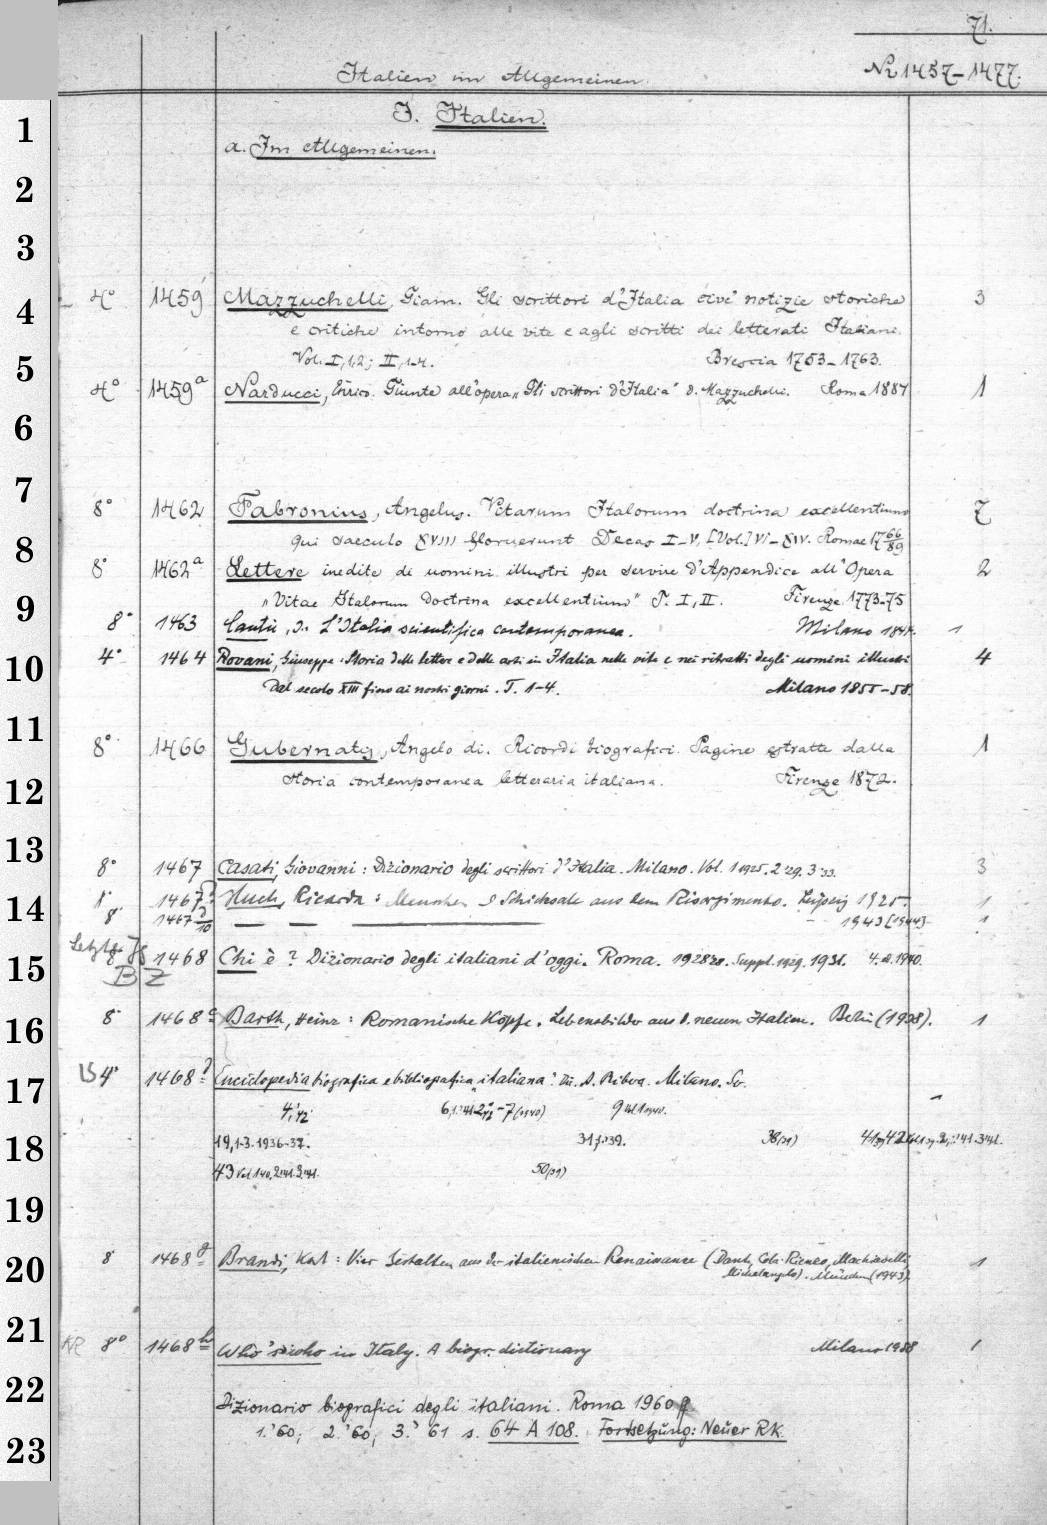 71.
Italien im Allgemeinen. No 1457-1477.
1 I. Italien.
a. Im Allgemeinen.
2
3
4 4° 1459 Mazzuchelli, Giam. Gli scrittori d'Italia cive notizie storiche 3
e critiche intorno alle vite e agli scritti dei letterati Italiani.
5 Vol. I,1,2; II,1-4. Brescia 1753-1763.
4° 1459a Narducci, Enrico. Giunte all'opera „Gli scrittori d'Italia" d. Mazzuchelli. Roma 1884 1
6
7 8° 1462 Fabronius, Angelus. Vitarum Italorum doctrina excellentium 7
8 qui saeculo XVIII floruerunt Decas I-V, [Vol.] VI-XIV. Romae 1766/89
8° 1462a Lettere inedite di uomini illustri per servire d'Appendice all'Opera 2
9 „Vitae Italorum doctrina excellentium" T. I, II. Firenze 1773-75
8° 1463 Cantù, I. L'Italia scientifica contemporanea. Milano 1844. 1
10 4° 1464 Rovani, Giuseppe: Storia delle lettere e delle arti in Italia nelle vite e nei ritratti degli uomini illustri 4
Dal secolo XIII fino ai nostri giorni. T. 1-4. Milano 1855-58.
11 8° 1466 Gubernatis, Angelo di. Ricordi biografici. Pagine estratte dalla 1
12 storia contemporanea letteraria italiana. Firenze 1872.
13 8° 1467 Casati, Giovanni: Dizionario degli scrittori d'Italia. Milano. Vol. 1 1925. 2 '29. 3 '33. 3
14 8° 1467 Huch, Ricarda: Menschen u Schicksale aus dem Risorgimento. Leipzig 1925 1
8° 1467 — — — 1943 [1944] 1
15 8° 1468 Chi è? Dizionario degli italiani d'oggi. Roma. 1928. Suppl. 1929. 1931. 4. 1940.
BZ
16 8° 1468 Barth, Heinz: Romanische Köpfe. Lebensbilder aus d. neuen Italien. Berlin (1938). 1
17 4° 1468 Enciclopedia biografica e bibliografica „italiana". Dir. A. Ribera. Milano. Sv.
4,'42 7 (1940) 9 1940.
18 19,1-3. 1936-37. 31 '39. 38(39)
43 Vol 1 '40, 2 '41. 3 '41. 50(39)
19
20 8° 1468g Brandi, Karl: Vier Gestalten aus der italienischen Renaissance (Dante, Cola Rienzo, Machiavelli 1
Michelangelo). München (1943).
21 8° 1468h Who's who in Italy. A biogr. dictionary Milano 1958 1
22 Dizionario biografici degli italiani. Roma 1960
1. '60; 2. '60; 3. '61 s. 64 A 108. Fortsetzung: Neuer RK.
23